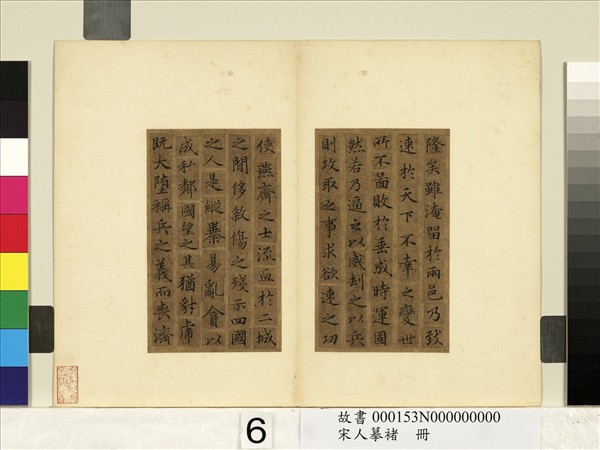 隆矣雖淹留於兩邑乃致
速於天下不幸之變世
所不啚敗於垂成時運固
然若乃逼之以威刦之以兵
則攻取之事求欲速之功
使燕齊之士流血於二城
之閒侈敘傷之殘示四國
之人是縱暴易亂貪以
成私鄰國望之其猶豺虎
既大墮稱兵之義而喪濟
6
故書 000153N000000000
宋人摹褚 冊